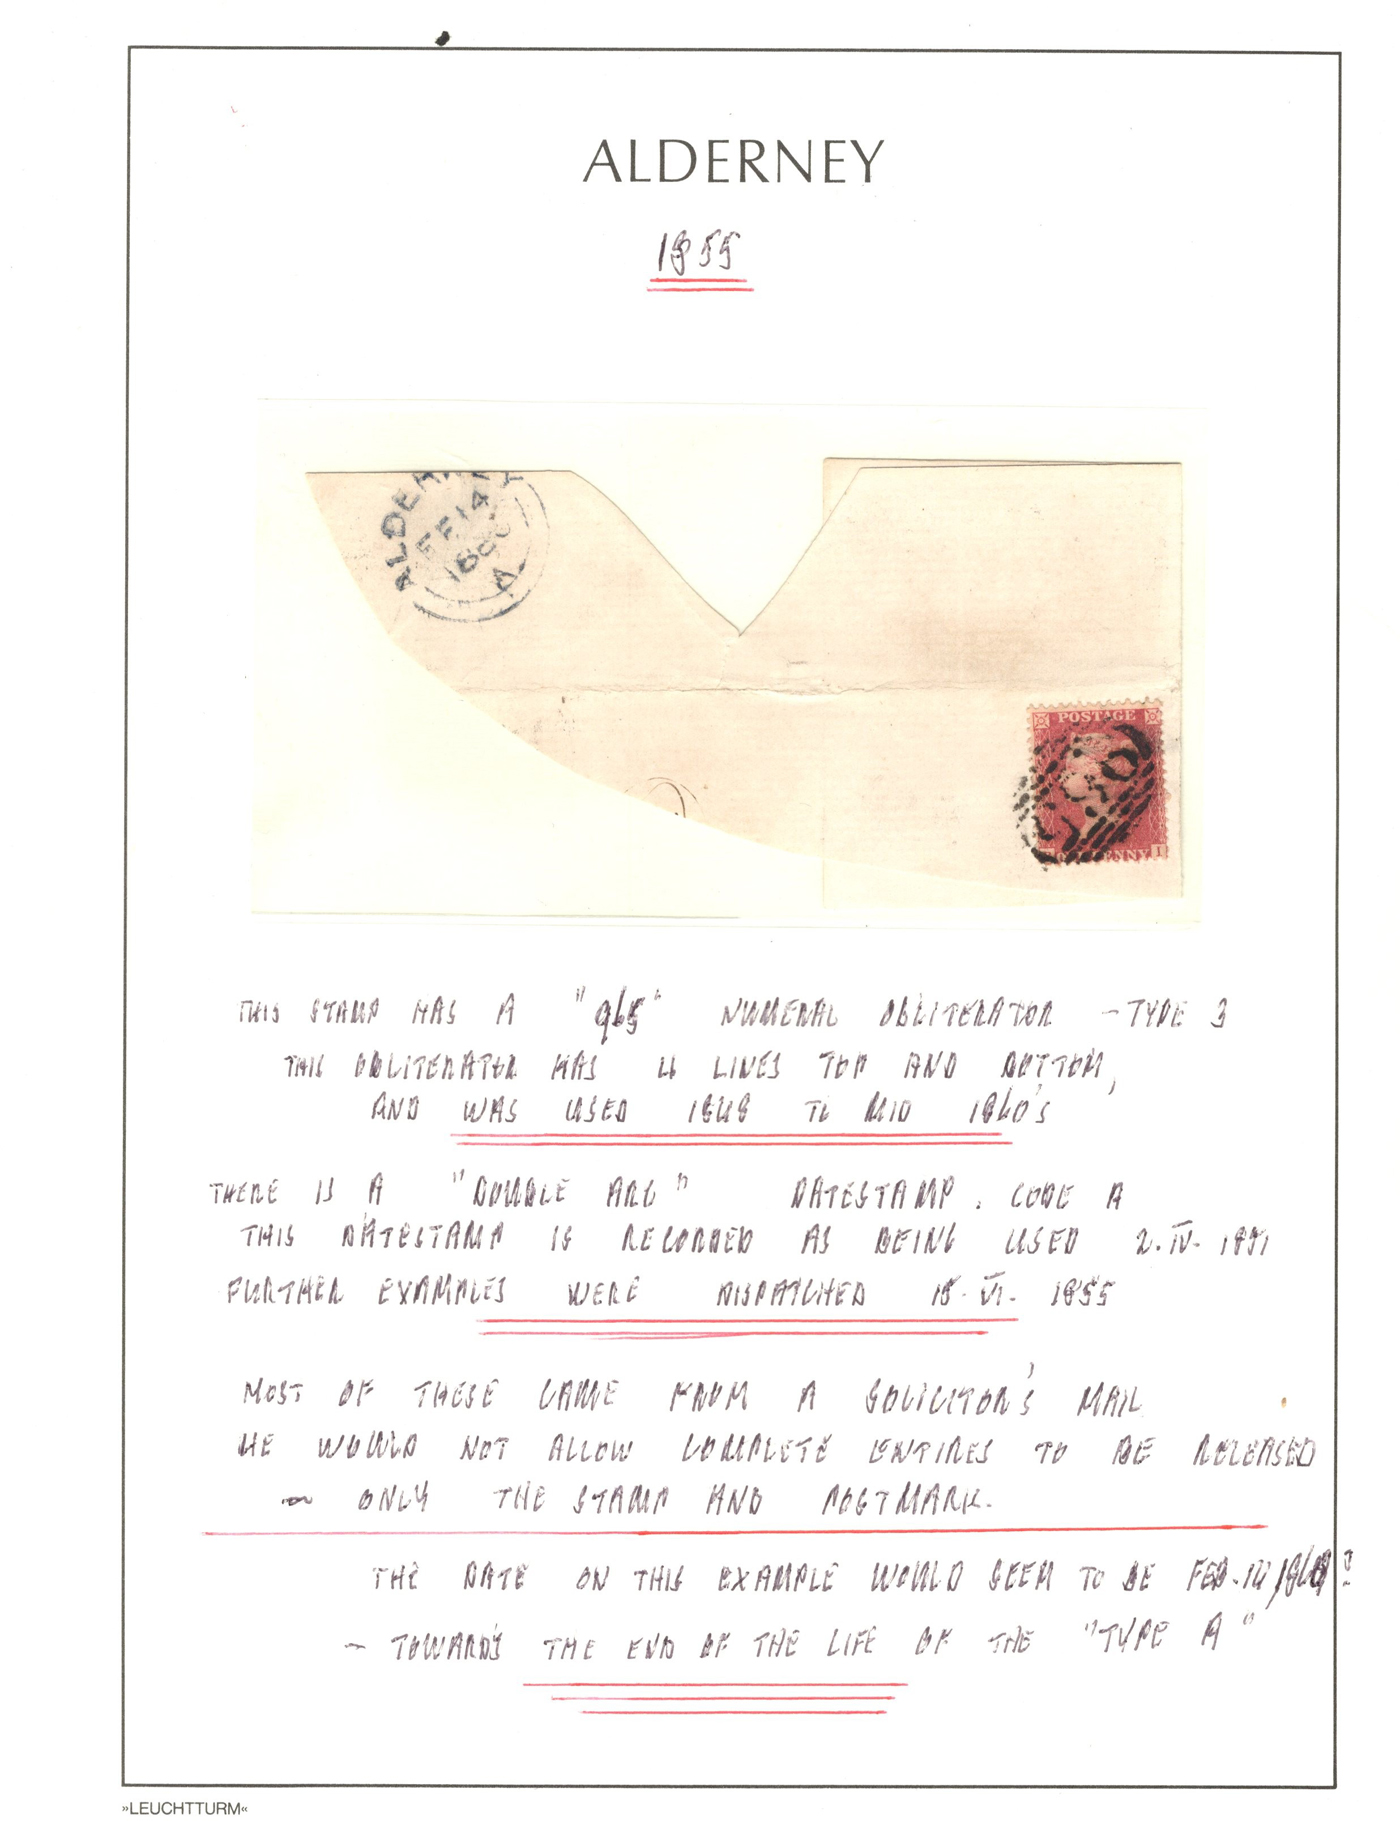 ALDERNEY
1855
ALDERNEY
FE 14
A
POSTAGE
PENNY I
THIS STAMP HAS A "965" NUMERAL OBLITERATOR - TYPE 3
THIS OBLITERATOR HAS 4 LINES TOP AND BOTTOM,
AND WAS USED 1848 TO MID 1860'S
THERE IS A "DOUBLE ARC" DATESTAMP. CODE A
THIS DATESTAMP IS RECORDED AS BEING USED 2. IV. 1851
FURTHER EXAMPLES WERE DISPATCHED 15. VI. 1855
MOST OF THESE CAME FROM A SOLICITOR'S MAIL
HE WOULD NOT ALLOW COMPLETE ENTIRES TO BE RELEASED
- ONLY THE STAMP AND POSTMARK.
THE DATE ON THIS EXAMPLE WOULD SEEM TO BE FEB. 14
- TOWARDS THE END OF THE LIFE OF THE "TYPE A"
»LEUCHTTURM«